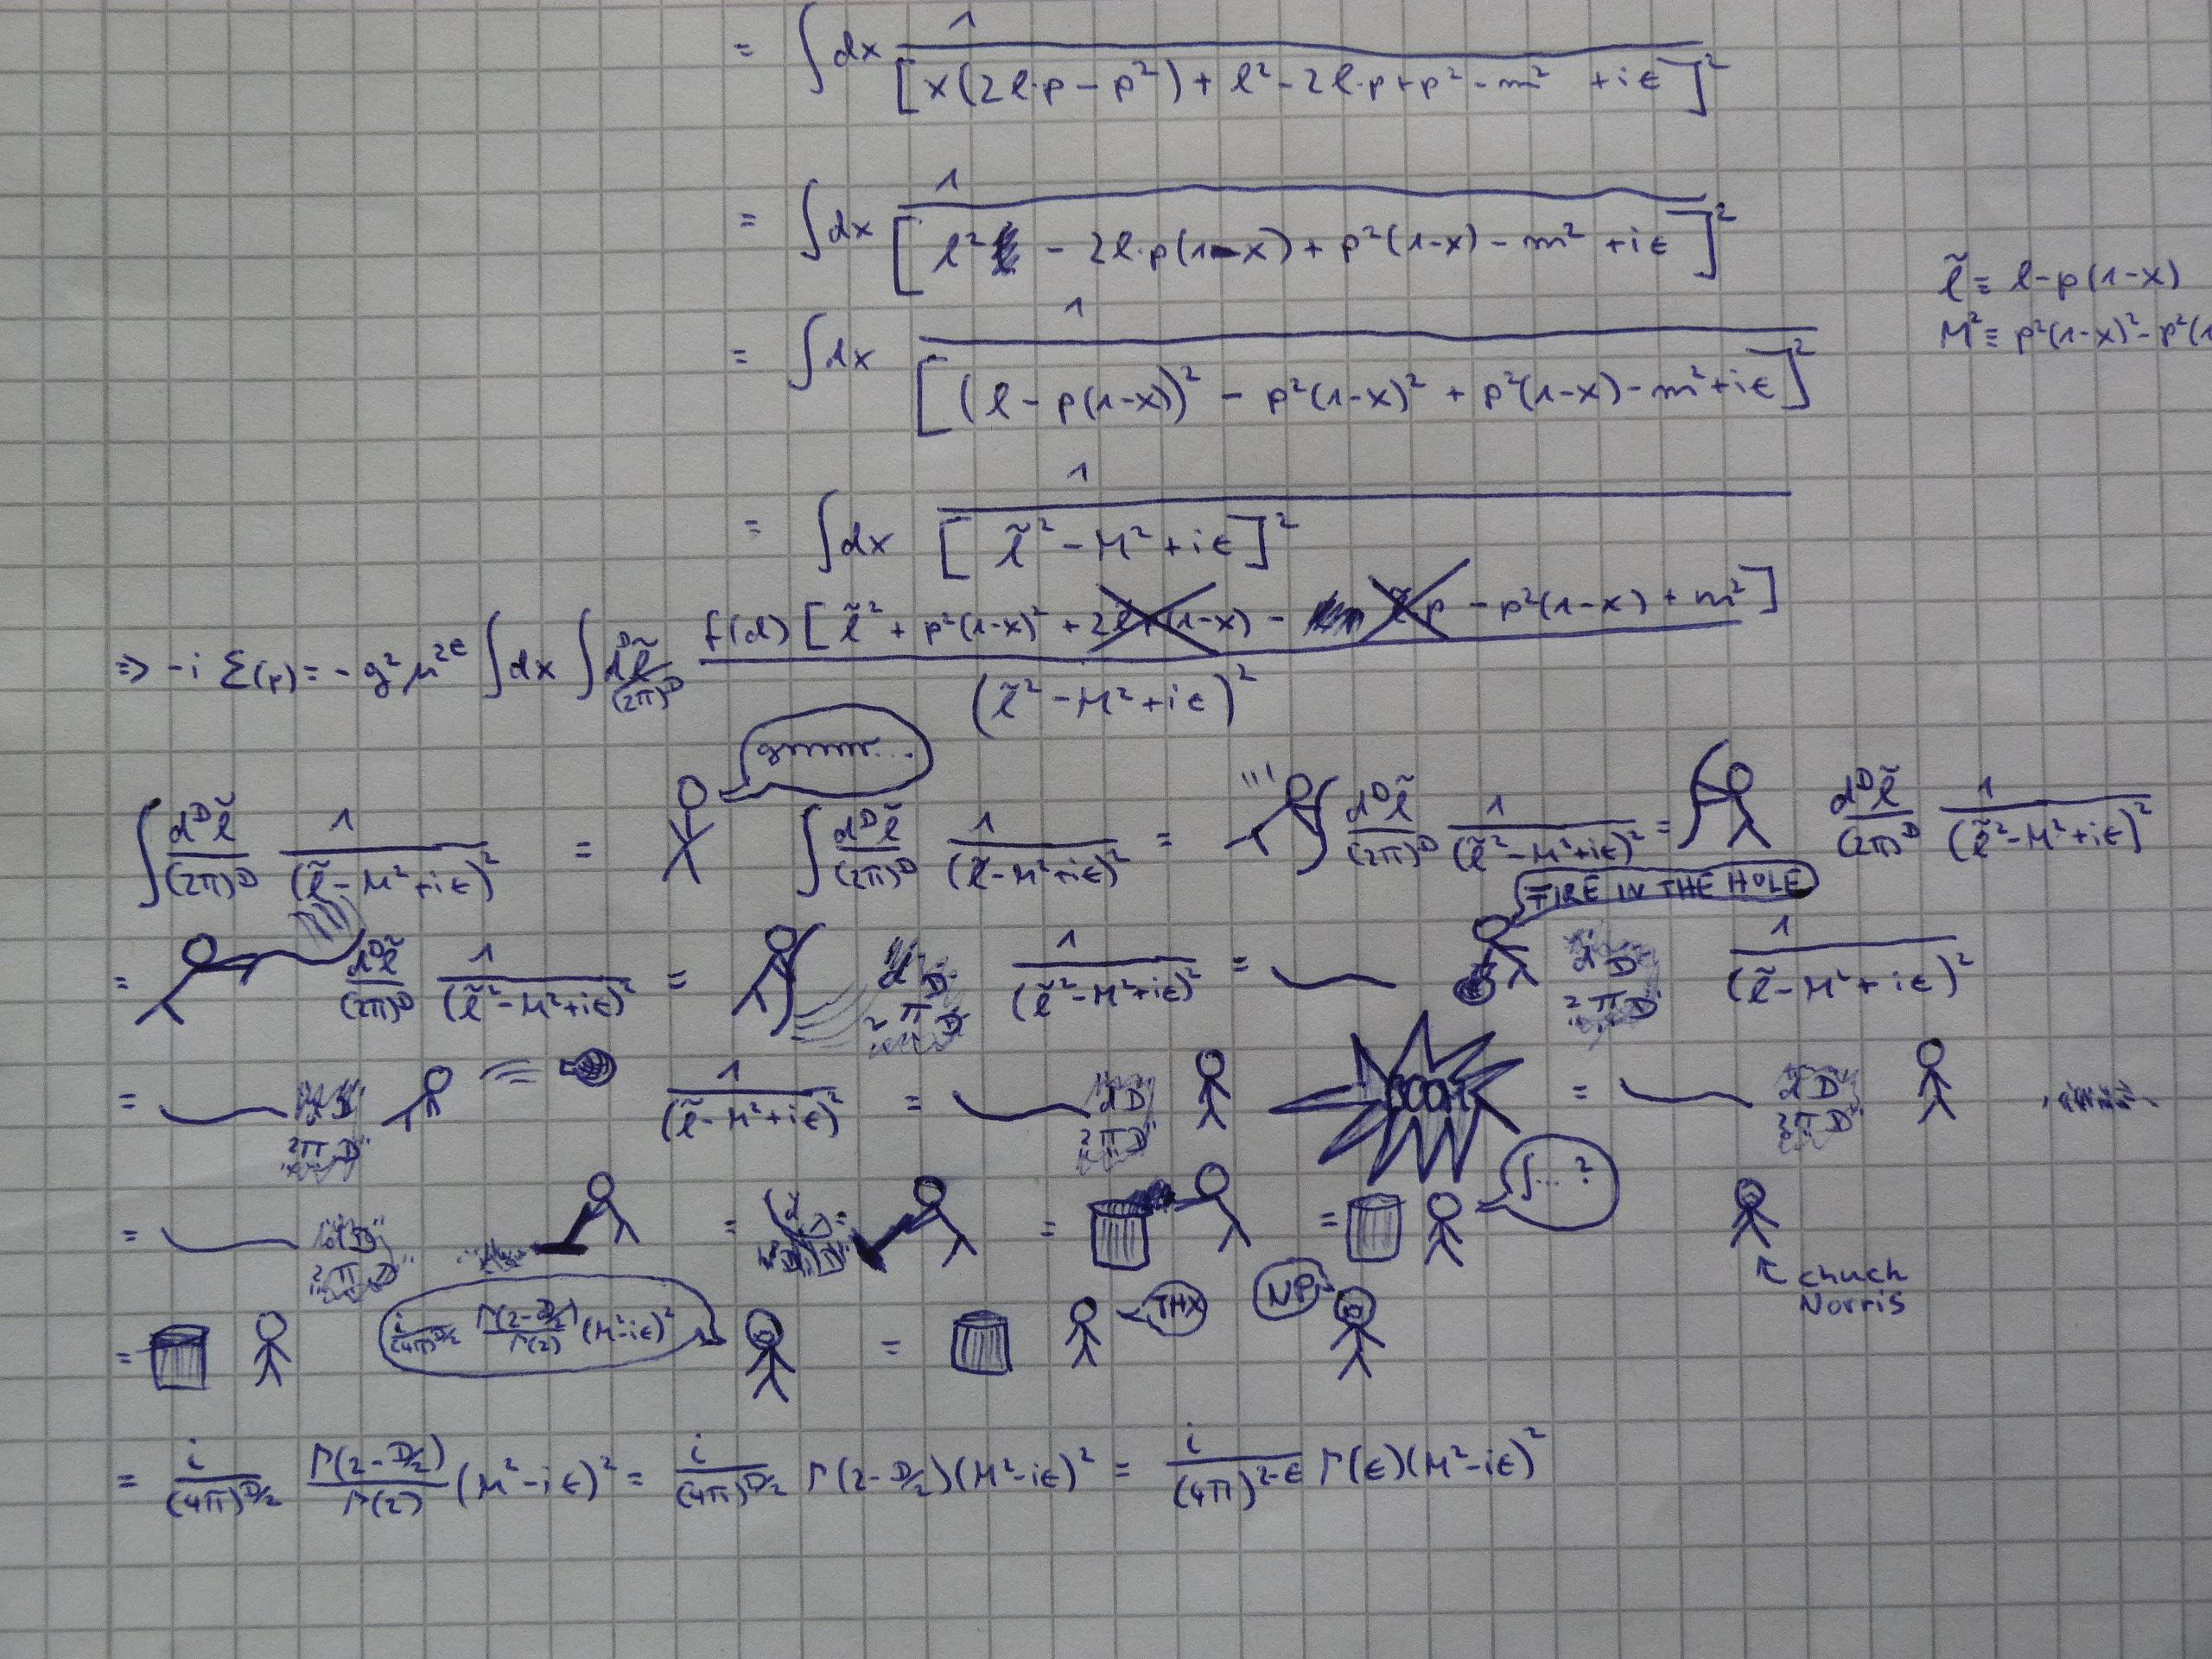 = ∫dx 1/[x(2ℓ·p - p²) + ℓ² - 2ℓ·p + p² - m² + iϵ]²
= ∫dx 1/[ℓ² - 2ℓ·p(1-x) + p²(1-x) - m² + iϵ]²
ℓ̃ ≡ ℓ-p(1-x)
= ∫dx 1/[(ℓ - p(1-x))² - p²(1-x)² + p²(1-x) - m² + iϵ]²
M² ≡ p²(1-x)² - p²(1
= ∫dx 1/[ℓ̃² - M² + iϵ]²
=> -i Σ(p) = -g² μ^{2ϵ} ∫dx ∫ d^Dℓ̃/(2π)^D f(d)[ℓ̃² + p²(1-x)² + 2ℓ̃ (1-x) - p - p²(1-x) + m²]/(ℓ̃² - M² + iϵ)²
grrrrr...
∫ d^Dℓ̃/(2π)^D 1/(ℓ̃ - M² + iϵ)² = ∫ d^Dℓ̃/(2π)^D 1/(ℓ̃ - M² + iϵ)² = ∫ d^Dℓ̃/(2π)^D 1/(ℓ̃² - M² + iϵ)² = ∫ d^Dℓ̃/(2π)^D 1/(ℓ̃² - M² + iϵ)²
FIRE IN THE HOLE
= d^Dℓ̃/(2π)^D 1/(ℓ̃² - M² + iϵ)² = d D 2 π D 1/(ℓ̃² - M² + iϵ)² = d D 2 π D 1/(ℓ̃ - M² + iϵ)²
= 2π D 1/(ℓ̃ - M² + iϵ)² = d D 2π D BOOM = d D 2π D
= d D 2 π D = = = ∫...?
chuck
Norris
= i/(4π)^{D/2} Γ(2-D/2)/Γ(2) (M²-iϵ)² = THX NP
= i/(4π)^{D/2} Γ(2-D/2)/Γ(2) (M²-iϵ)² = i/(4π)^{D/2} Γ(2-D/2)(M²-iϵ)² = i/(4π)^{2-ϵ} Γ(ϵ)(M²-iϵ)²